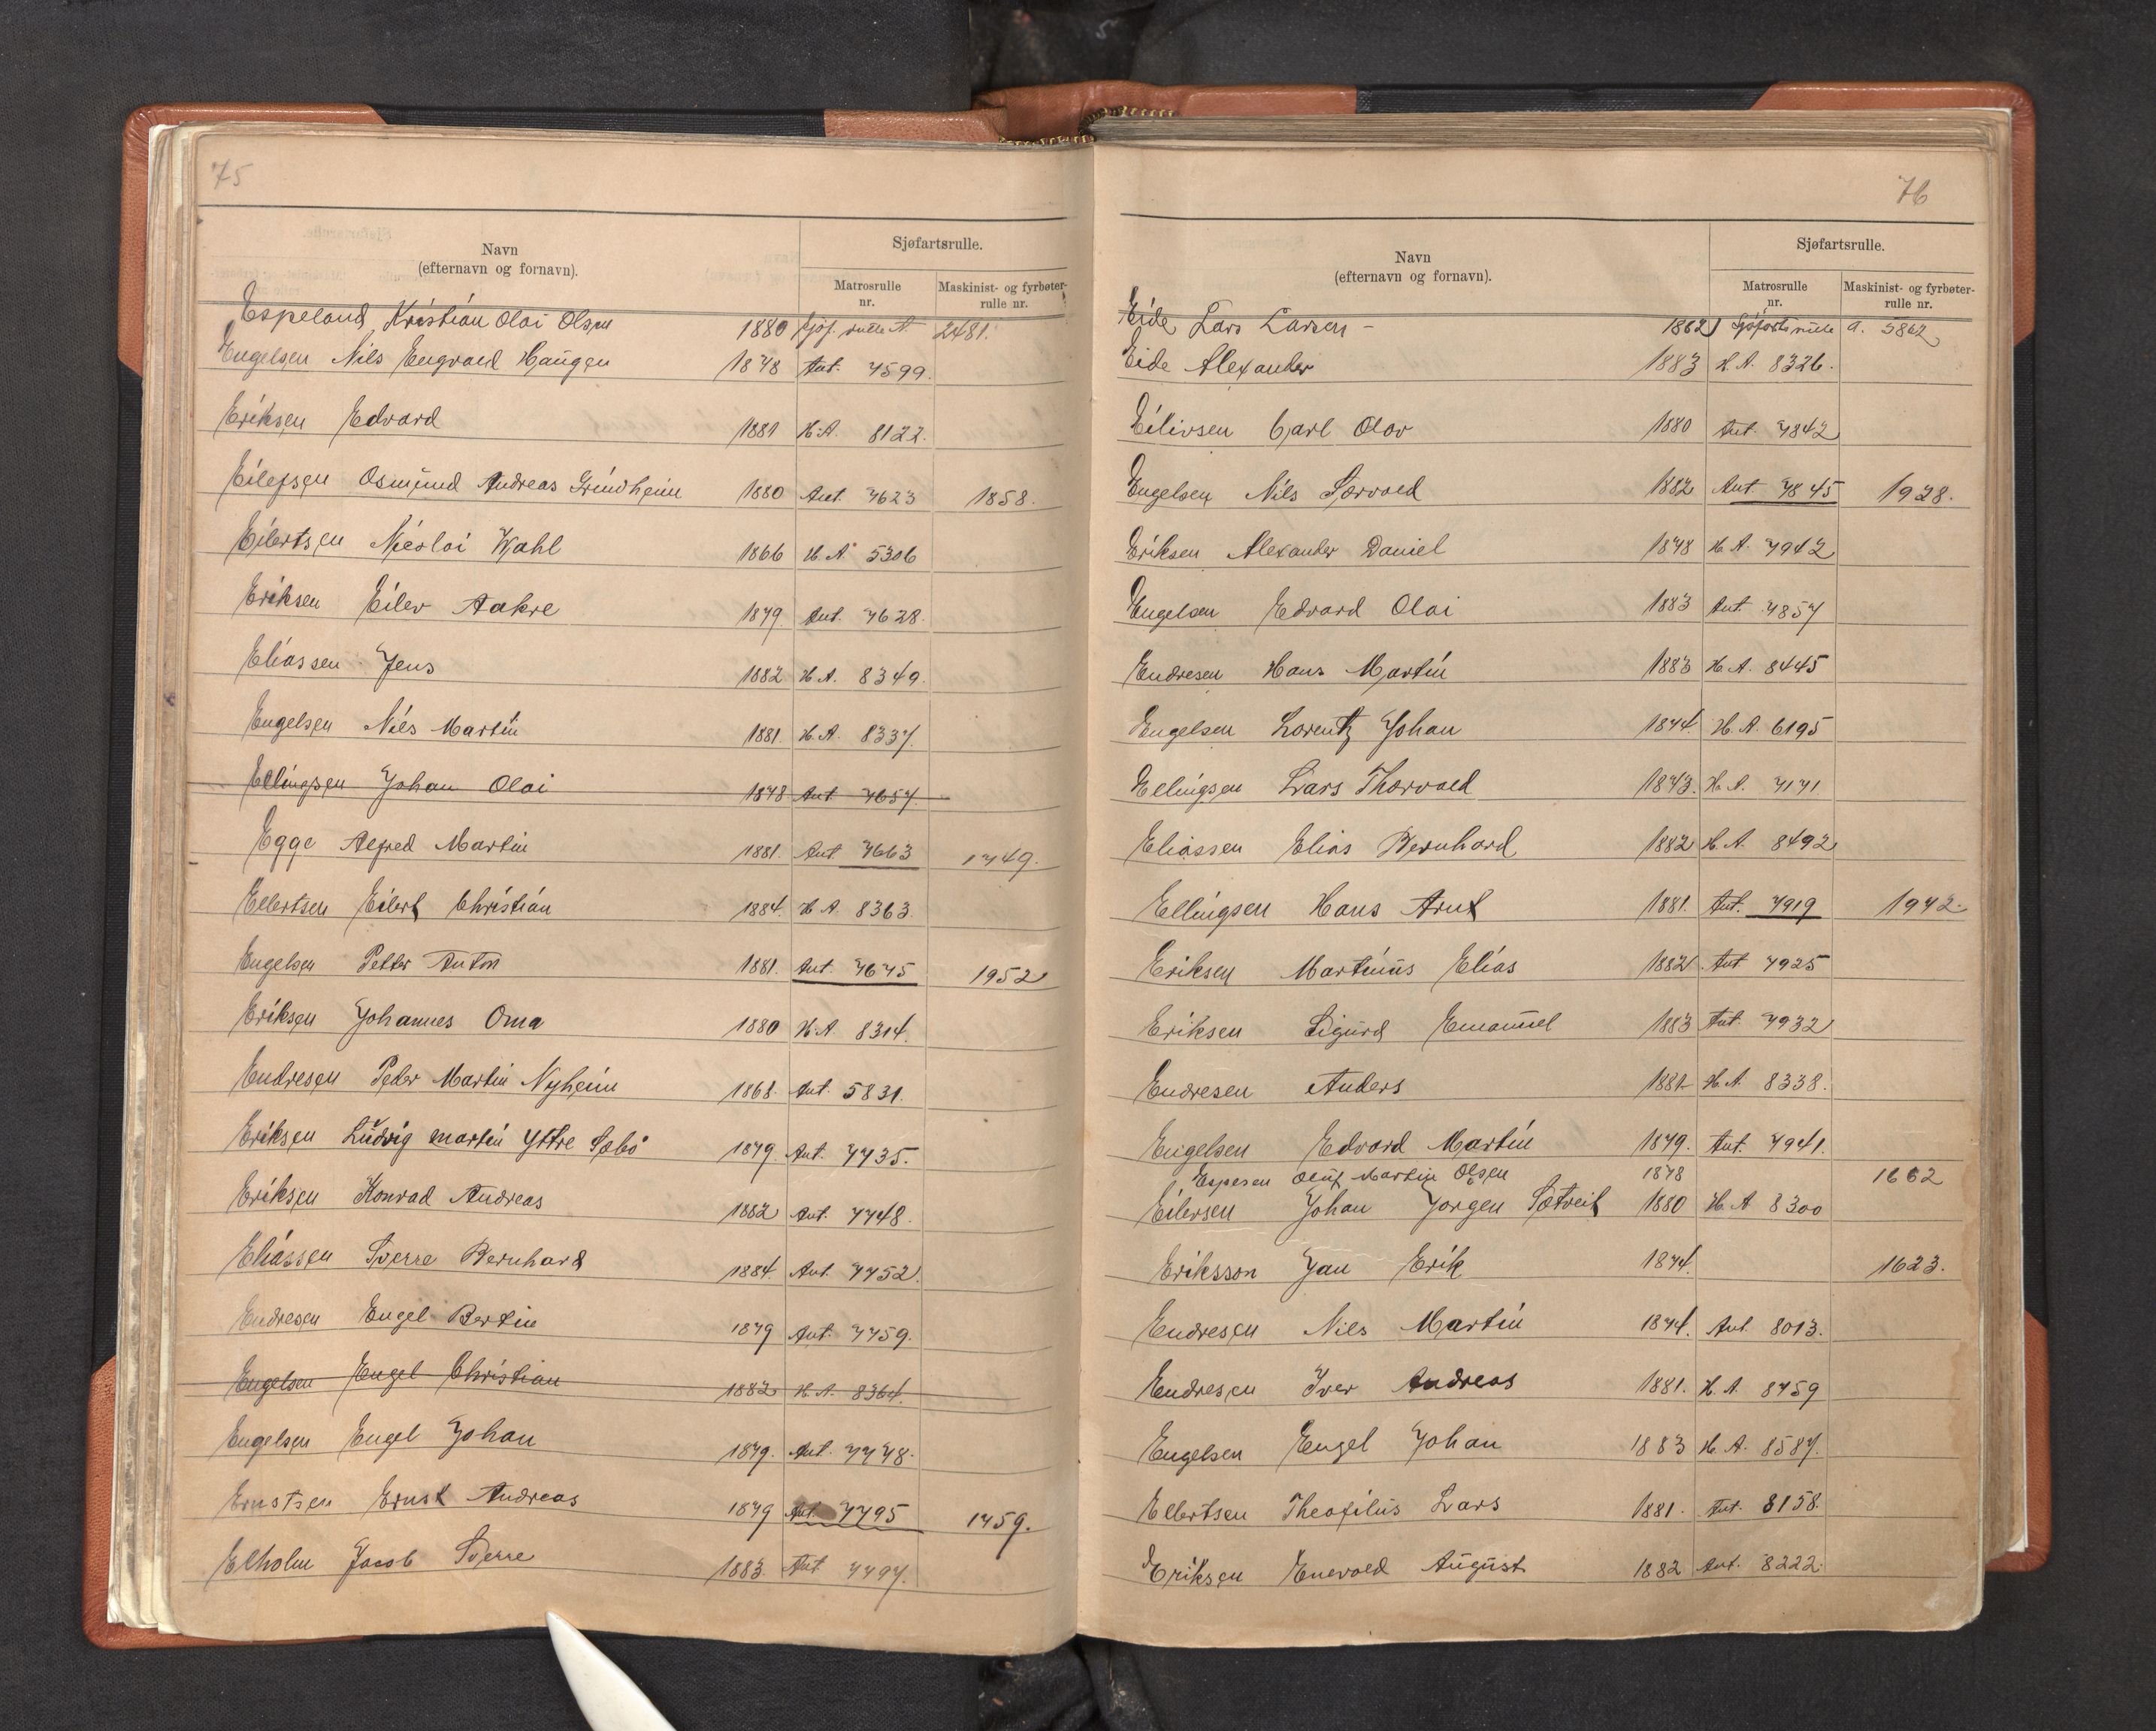 75
Navn
(efternavn og fornavn).
Sjøfartsrulle.
Matrosrulle
nr.
Maskinist- og fyrbøter-
rulle nr.
Espeland, Kristian Olai Olsen 1880 Sjøf. rulle A. 2481.
Engelsen Nils Engvald Haugen 1878 Ant. 7599.
Eriksen Edvard 1881 H.A. 8122.
Eilefsen Osmund Andreas Grindheim 1880 Ant. 7623 1858.
Eilertsen Nicolai Wahl 1866 H.A. 5306
Eriksen Eilev Aakre 1879. Ant. 7628.
Eliassen Jens 1882 H.A. 8349.
Engelsen Nils Martin 1881. H.A. 8337.
Ellingsen Johan Olai 1878 Ant 7657.
Egge Alfred Martin 1881. Ant 7663 1749.
Ellertsen Eilert Christian 1884. H.A. 8363.
Engelsen Petter Anton 1881. Ant. 7675 1952
Eriksen Johannes Oma 1880 H.A. 8314.
Endresen Peder Martin Nyheim 1868. Ant. 5831.
Eriksen Ludvig Martin Yttre Sæbø 1879. Ant. 7735.
Eriksen Konrad Andreas 1882 Ant. 7748.
Eliassen Sverre Bernhard 1884. Ant. 7752.
Endresen Engel Bertin 1879 Ant. 7759.
Engelsen Engel Christian 1882 H.A. 8364.
Engelsen Engel Johan 1879. Ant. 7778.
Ernstsen Ernst Andreas 1879 Ant. 7795 1759.
Elholm Jacob Sverre 1883. Ant 7797.
76
Navn
(efternavn og fornavn).
Sjøfartsrulle.
Matrosrulle
nr.
Maskinist- og fyrbøter-
rulle nr.
Eide, Lars Larsen - 1862 Sjøfartsrulle a. 5862
Eide Alexander 1883 H.A. 8326.
Eilivsen Carl Olav 1880 Ant. 7842
Engelsen Nils Sørvald 1882 Ant. 7845 1928.
Eriksen Alexander Daniel 1878 H.A. 7942
Engelsen Edvard Olai 1883 Ant 7857
Endresen Hans Martin 1883 H.A. 8445
Engelsen Lorentz Johan 1874. H.A. 6195
Ellingsen Lars Thorvald 1873. H.A. 7171
Eliassen Elias Bernhard 1882 H.A. 8492
Ellingsen Hans Arnt 1881. Ant. 7919 1942.
Eriksen Martinus Elias 1882. Ant 7925
Eriksen Sigurd Emanuel 1883 Ant. 7932
Endresen Anders 1881- H.A. 8338.
Engelsen Edvard Martin 1879. Ant. 7941.
Espesen Oluf Martin Olsen 1878 1662
Eilersen Johan Jørgen Sætveit 1880 H.A. 8300
Eriksson Jan Erik 1874. 1623.
Endresen Nils Martin 1874. Ant. 8013.
Endresen Iver Andreas 1881. H.A. 8759
Engelsen Engel Johan 1883 H.A. 8587.
Ellertsen Theofilus Lars 1881. Ant. 8158.
Eriksen Enevald August 1882 Ant. 8222.